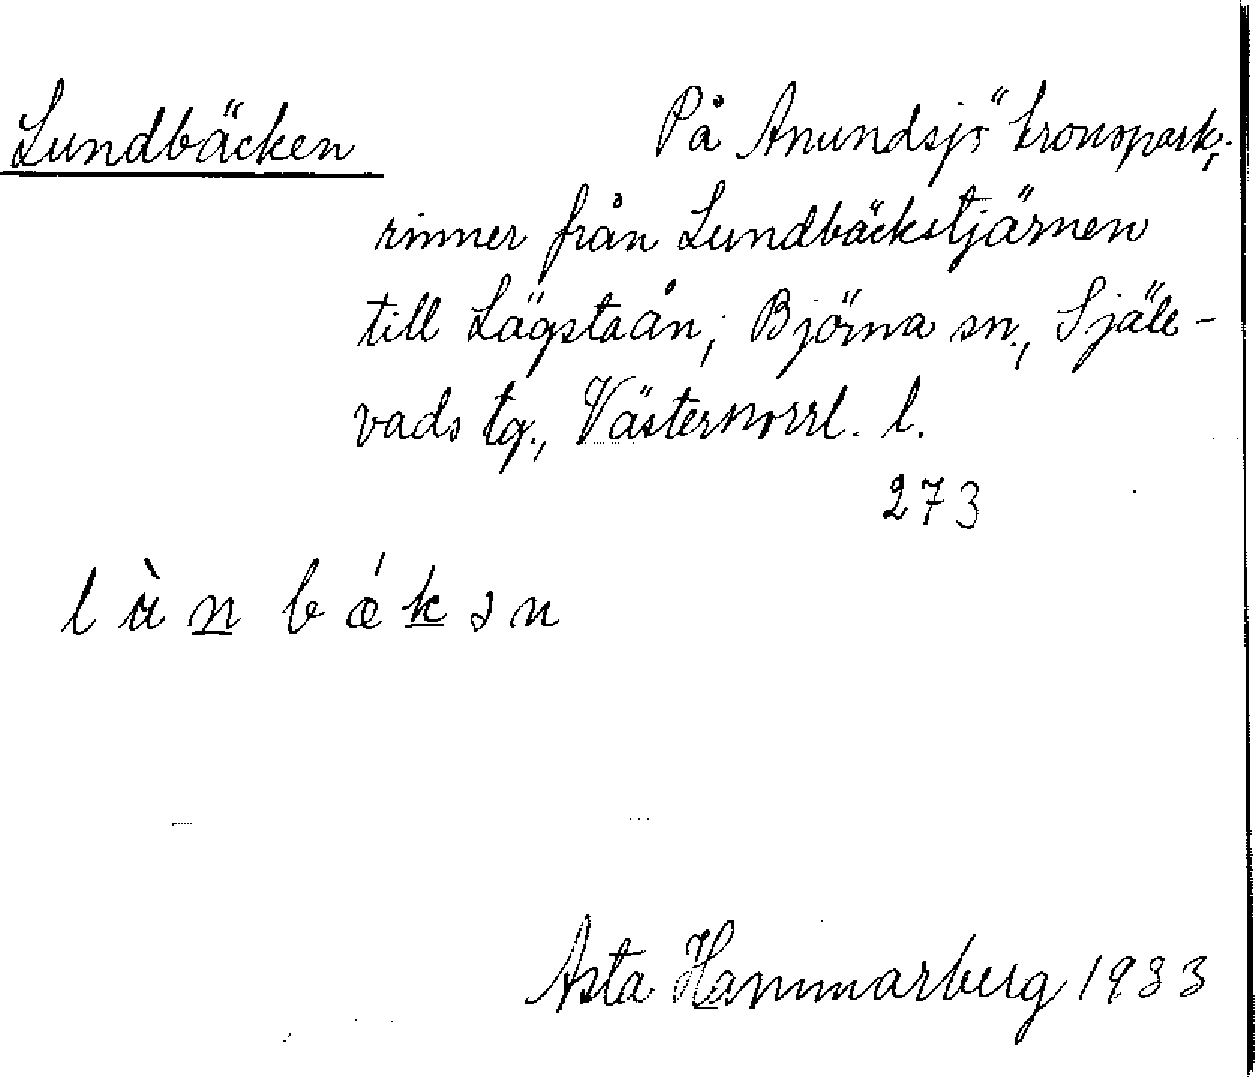 Lundbäcken På Anundsjö kronopark;
rinner från Lundbäckstjärnen
till Lägstaån; Björna sn., Själe-
vads tg., Västernorrl. l.
273
lùn bǽkən
Asta Hammarberg 1933